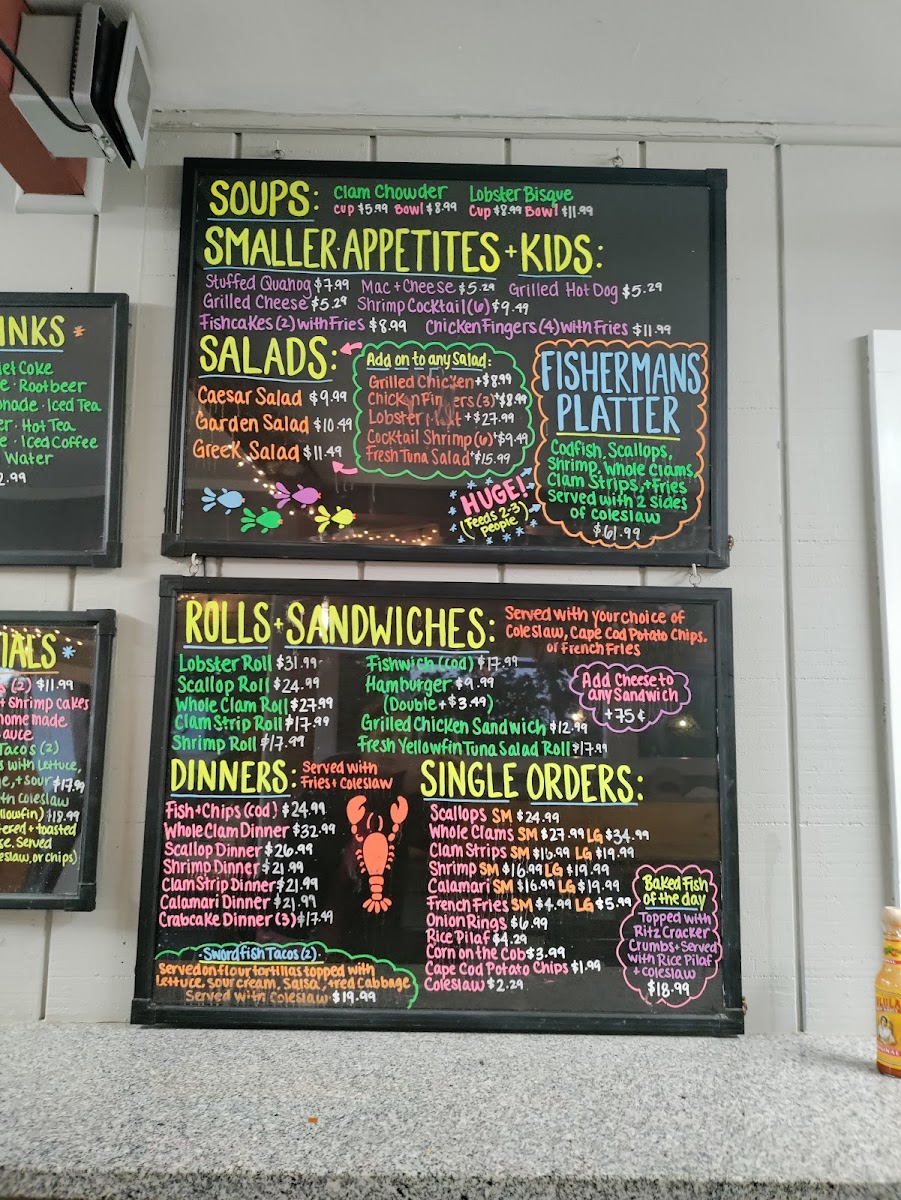 SOUPS: Clam Chowder Lobster Bisque
Cup $5.99 Bowl $8.99 Cup $8.99 Bowl $11.99
SMALLER APPETITES + KIDS:
Stuffed Quahog $7.99 Mac + Cheese $5.29 Grilled Hot Dog $5.29
Grilled Cheese $5.29 Shrimp Cocktail (6) $9.49
Fishcakes (2) with Fries $8.99 Chicken Fingers (4) with Fries $11.99
SALADS:
Caesar Salad $9.99
Garden Salad $10.49
Greek Salad $11.49
Add on to any Salad:
Grilled Chicken +$8.99
Chicken Fingers (3) +$8.99
Lobster +$27.99
Cocktail Shrimp (6) +$9.49
Fresh Tuna Salad +$15.99
HUGE!
(Feeds 2-3
people)
FISHERMANS
PLATTER
Codfish, Scallops,
Shrimp, Whole Clams,
Clam Strips, + Fries
Served with 2 sides
of coleslaw
$61.99
ROLLS + SANDWICHES:
Served with your choice of
Coleslaw, Cape Cod Potato Chips,
or French Fries
Lobster Roll $31.99
Scallop Roll $24.99
Whole Clam Roll $27.99
Clam Strip Roll $17.99
Shrimp Roll $17.99
Fishwich (cod) $17.99
Hamburger $9.99
(Double + $3.49)
Grilled Chicken Sandwich $12.99
Fresh Yellowfin Tuna Salad Roll $17.99
Add Cheese to
any Sandwich
+75¢
DINNERS: Served with
Fries + Coleslaw
Fish + Chips (cod) $24.99
Whole Clam Dinner $32.99
Scallop Dinner $26.99
Shrimp Dinner $21.99
Clam Strip Dinner $21.99
Calamari Dinner $21.99
Crabcake Dinner (3) $17.99
Swordfish Tacos (2)
Served on flour tortillas topped with
lettuce, sour cream, salsa, + red cabbage
Served with Coleslaw $19.99
SINGLE ORDERS:
Scallops SM $24.99
Whole Clams SM $27.99 LG $34.99
Clam Strips SM $16.99 LG $19.99
Shrimp SM $16.99 LG $19.99
Calamari SM $16.99 LG $19.99
French Fries SM $4.99 LG $5.99
Onion Rings $6.99
Rice Pilaf $4.29
Corn on the Cob $3.99
Cape Cod Potato Chips $1.99
Coleslaw $2.29
Baked Fish
of the day
Topped with
Ritz Cracker
Crumbs + Served
with Rice Pilaf
+ coleslaw
$18.99
INKS
iet Coke
e · Rootbeer
onade · Iced Tea
er · Hot Tea
e · Iced Coffee
Water
2.99
IALS
(2) $11.99
+ Shrimp Cakes
homemade
auce
Tacos (2)
s with lettuce,
e, + sour $17.99
th coleslaw
llowfin) $18.99
ered + toasted
se. Served
eslaw, or chips)